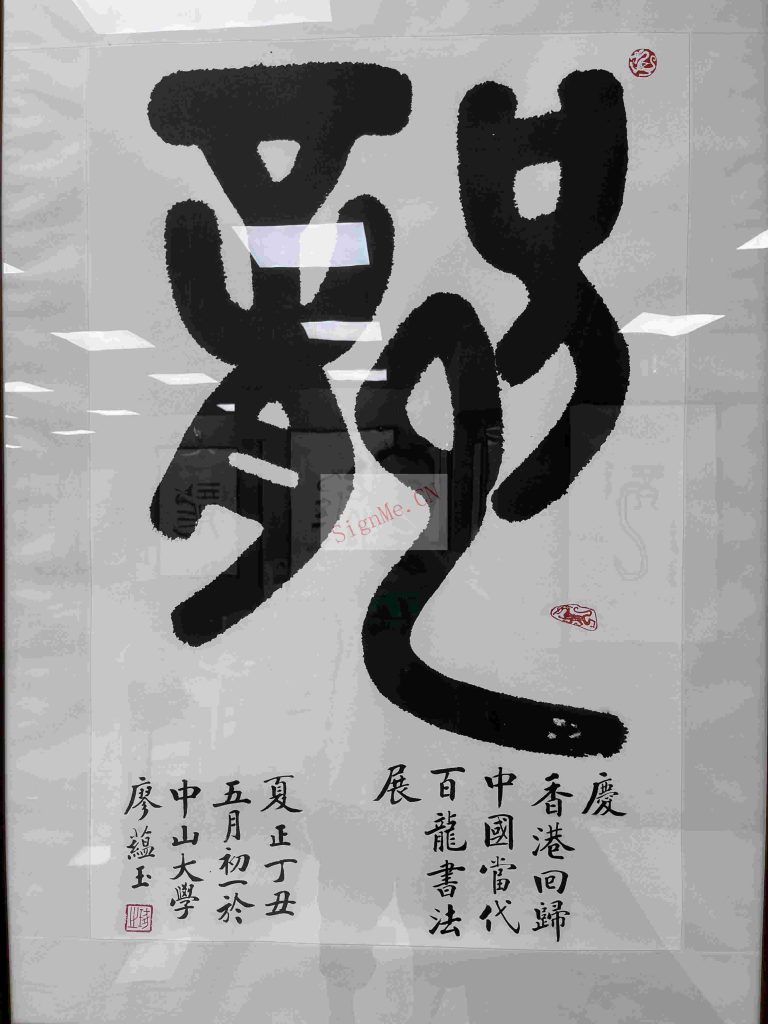 龍
慶
香港回歸
中國當代
百龍書法
展
夏正丁丑
五月初一於
中山大學
廖蘊玉
SignMe.CN